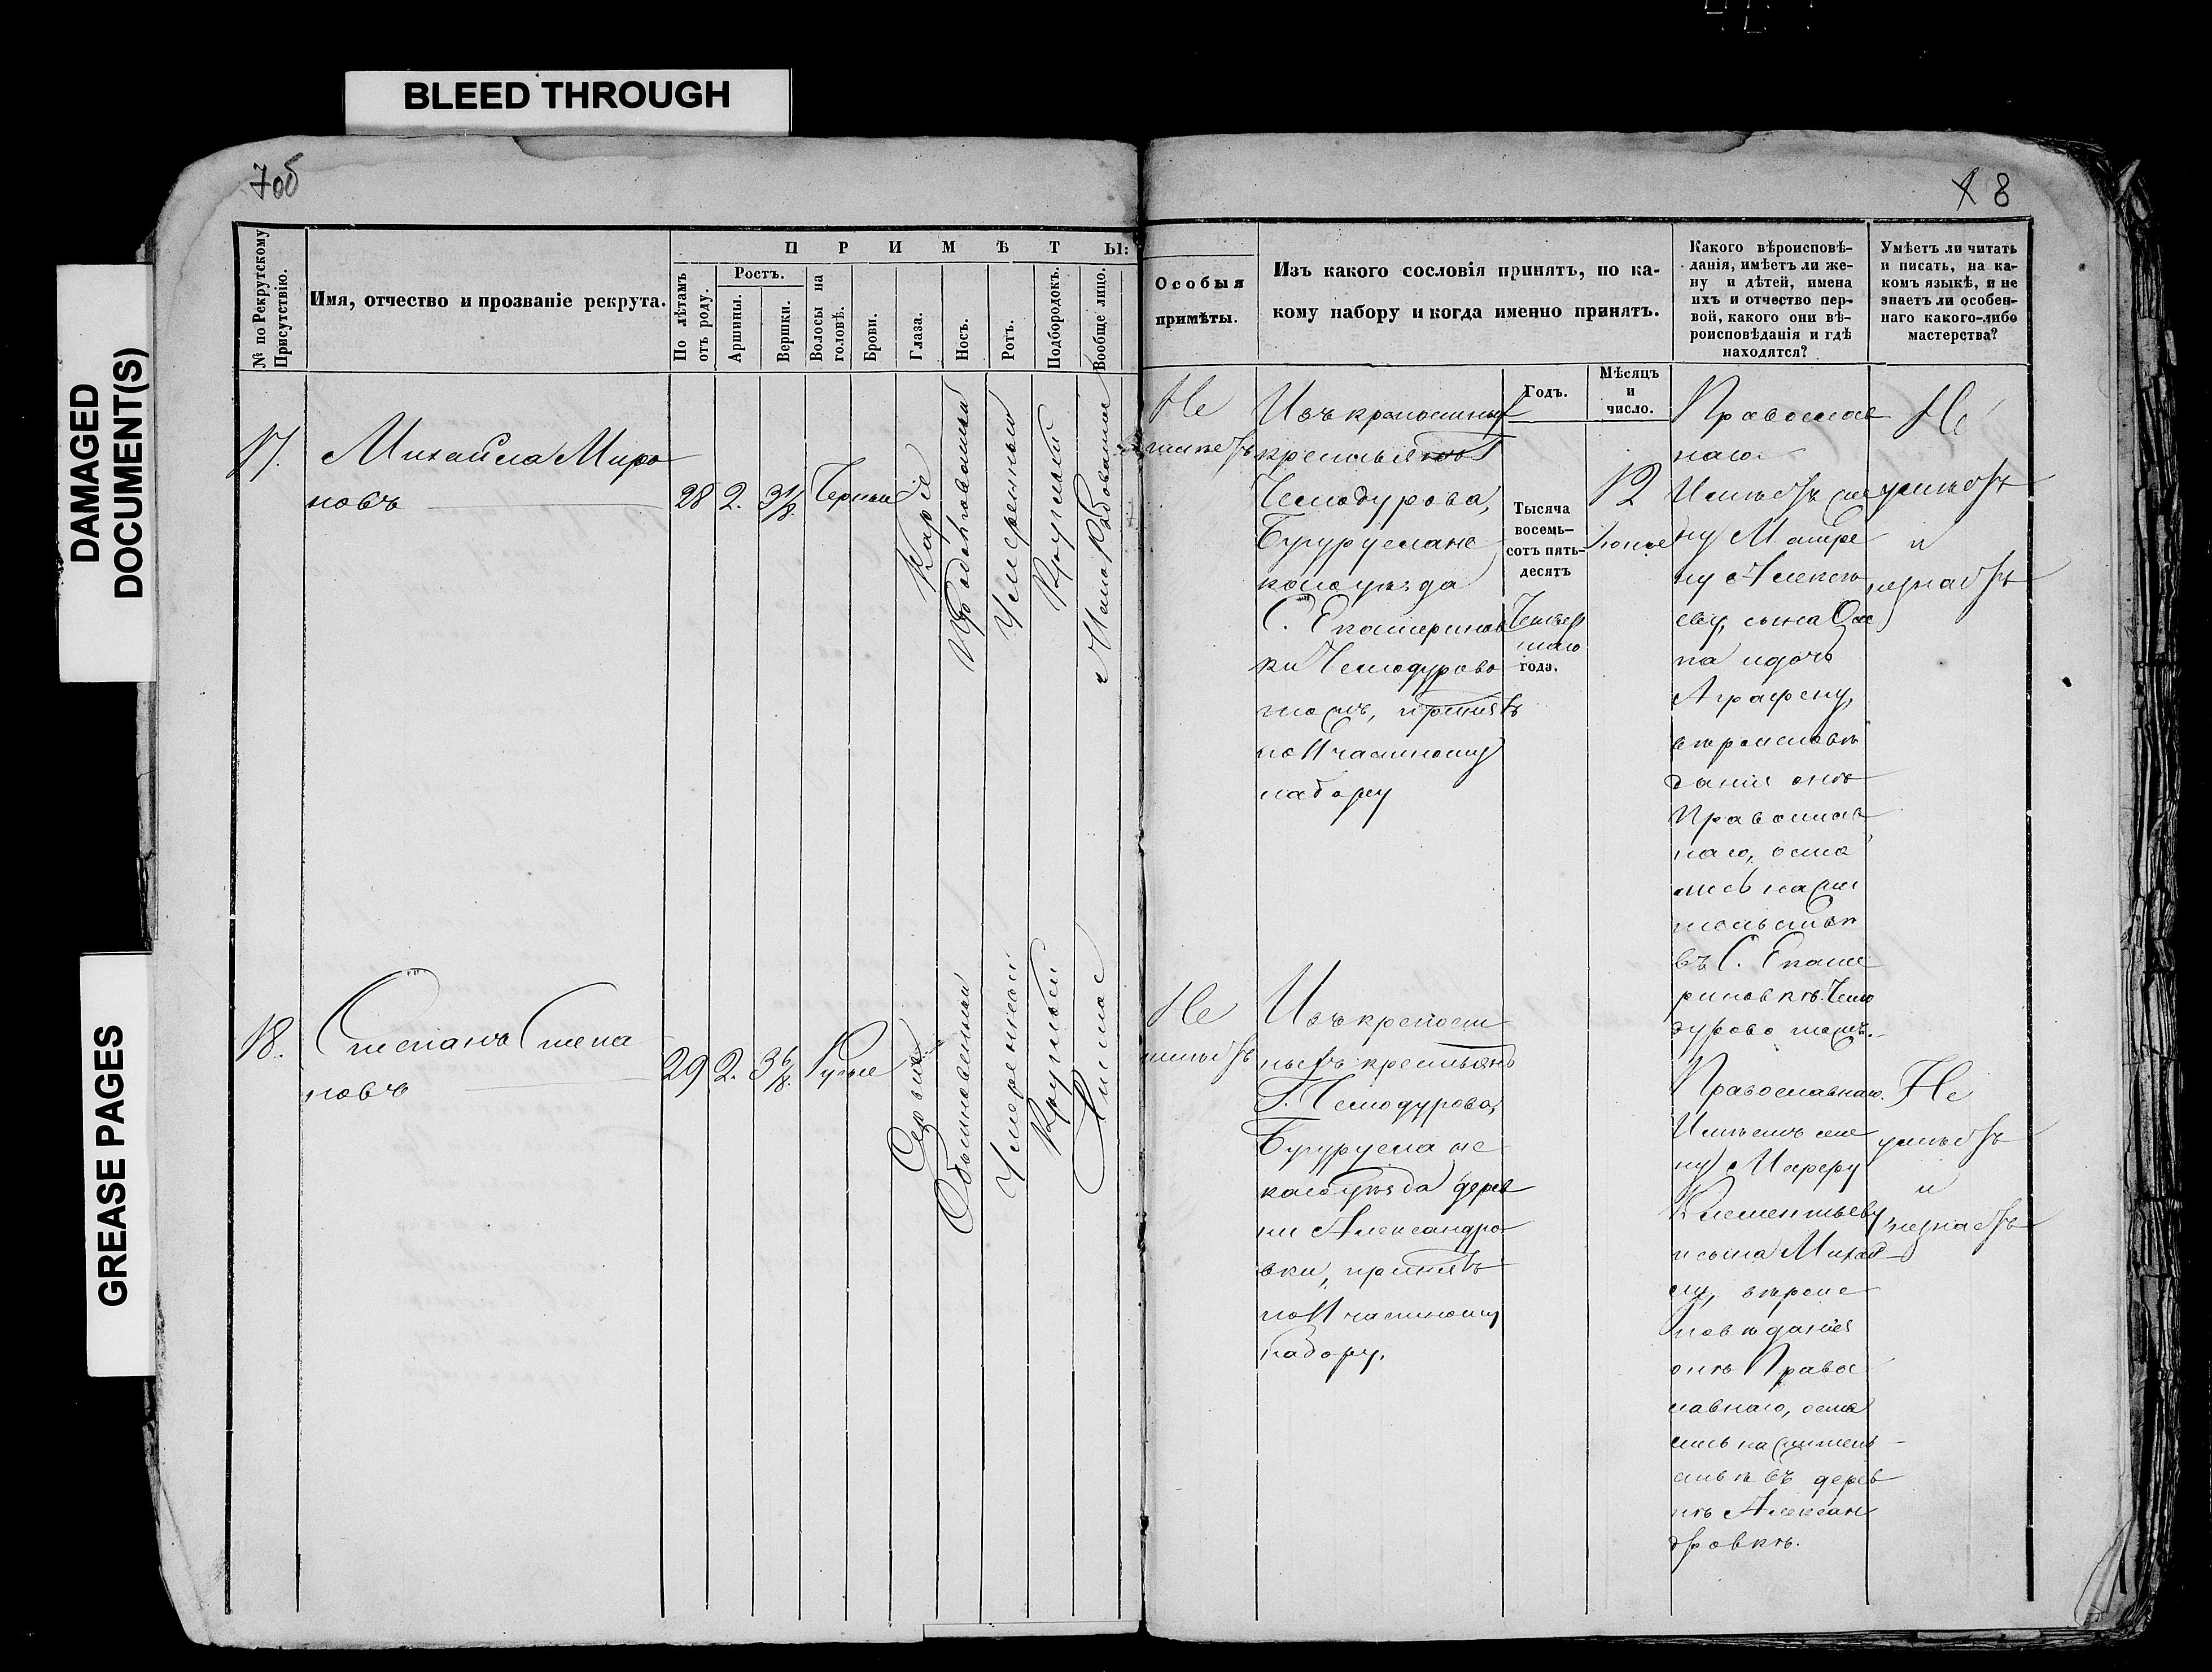 BLEED THROUGH
DAMAGED
DOCUMENT(S)
GREASE PAGES
7об
8
№ по Рекрутскому
Присутствію.
Имя, отчество и прозваніе рекрута.
ПРИМѢТЫ:
По лѣтамъ
отъ роду.
Ростъ.
Аршины.
Вершки.
Волосы на
головѣ.
Брови.
Глаза.
Носъ.
Ротъ.
Подбородокъ.
Вообще лицо.
Особыя
примѣты.
Изъ какого сословія принятъ, по ка-
кому набору и когда именно принятъ.
Годъ.
Мѣсяцъ
и
число.
Какого вѣроисповѣ-
данія, имѣетъ ли же-
ну и дѣтей, имена
ихъ и отчество пер-
вой, какого они вѣ-
роисповѣданія и гдѣ
находятся?
Умѣетъ ли читать
и писать, на ка-
комъ языкѣ, и не
знаетъ ли особен-
наго какого-либо
мастерства?
17.
Михайла Миро
новъ
28
2.
Черные
Каріе
Умеренный
Круглый
Не
имѣетъ
Изъ крепостныхъ
крестьянъ Г
Чемодурова,
Бугурусланс
каго уѣзда
С. Екатеринов
ки Чемодурово
тожъ, принятъ
по Частному
набору
Тысяча
восемь-
сотъ пять-
десятъ
Четвер
таго
года.
12
Іюня
Православ
наго
Имѣетъ же
ну Матре
ну Алексѣ
еву, сына Оси
па и дочь
Аграфену,
вѣроисповѣ
данія онѣ
Православ
наго, оста
лись на жи
тельствѣ
въ С. Екате
риновкѣ Чемо
дурово тожъ.
Не
умѣетъ
и
незнаетъ
18.
Степанъ Степа
новъ
29
2.
3 6/8.
Русые
Серые
Обыкновенный
Умеренный
Круглый
Чистое
Не
имѣетъ
Изъ крепост
ныхъ крестьянъ
Г. Чемодурова,
Бугурусланс
каго уѣзда дерев
ни Александро
вки, принятъ
по Частному
набору.
Православнаго.
Имѣетъ же
ну Марфу
Клементьеву
и сына Михай
лу, вѣроис
повѣданія
онѣ Правос
лавнаго, оста
лись на житель
ствѣ въ дерев
нѣ Алексан
дровкѣ.
Не
умѣетъ
и
незнаетъ